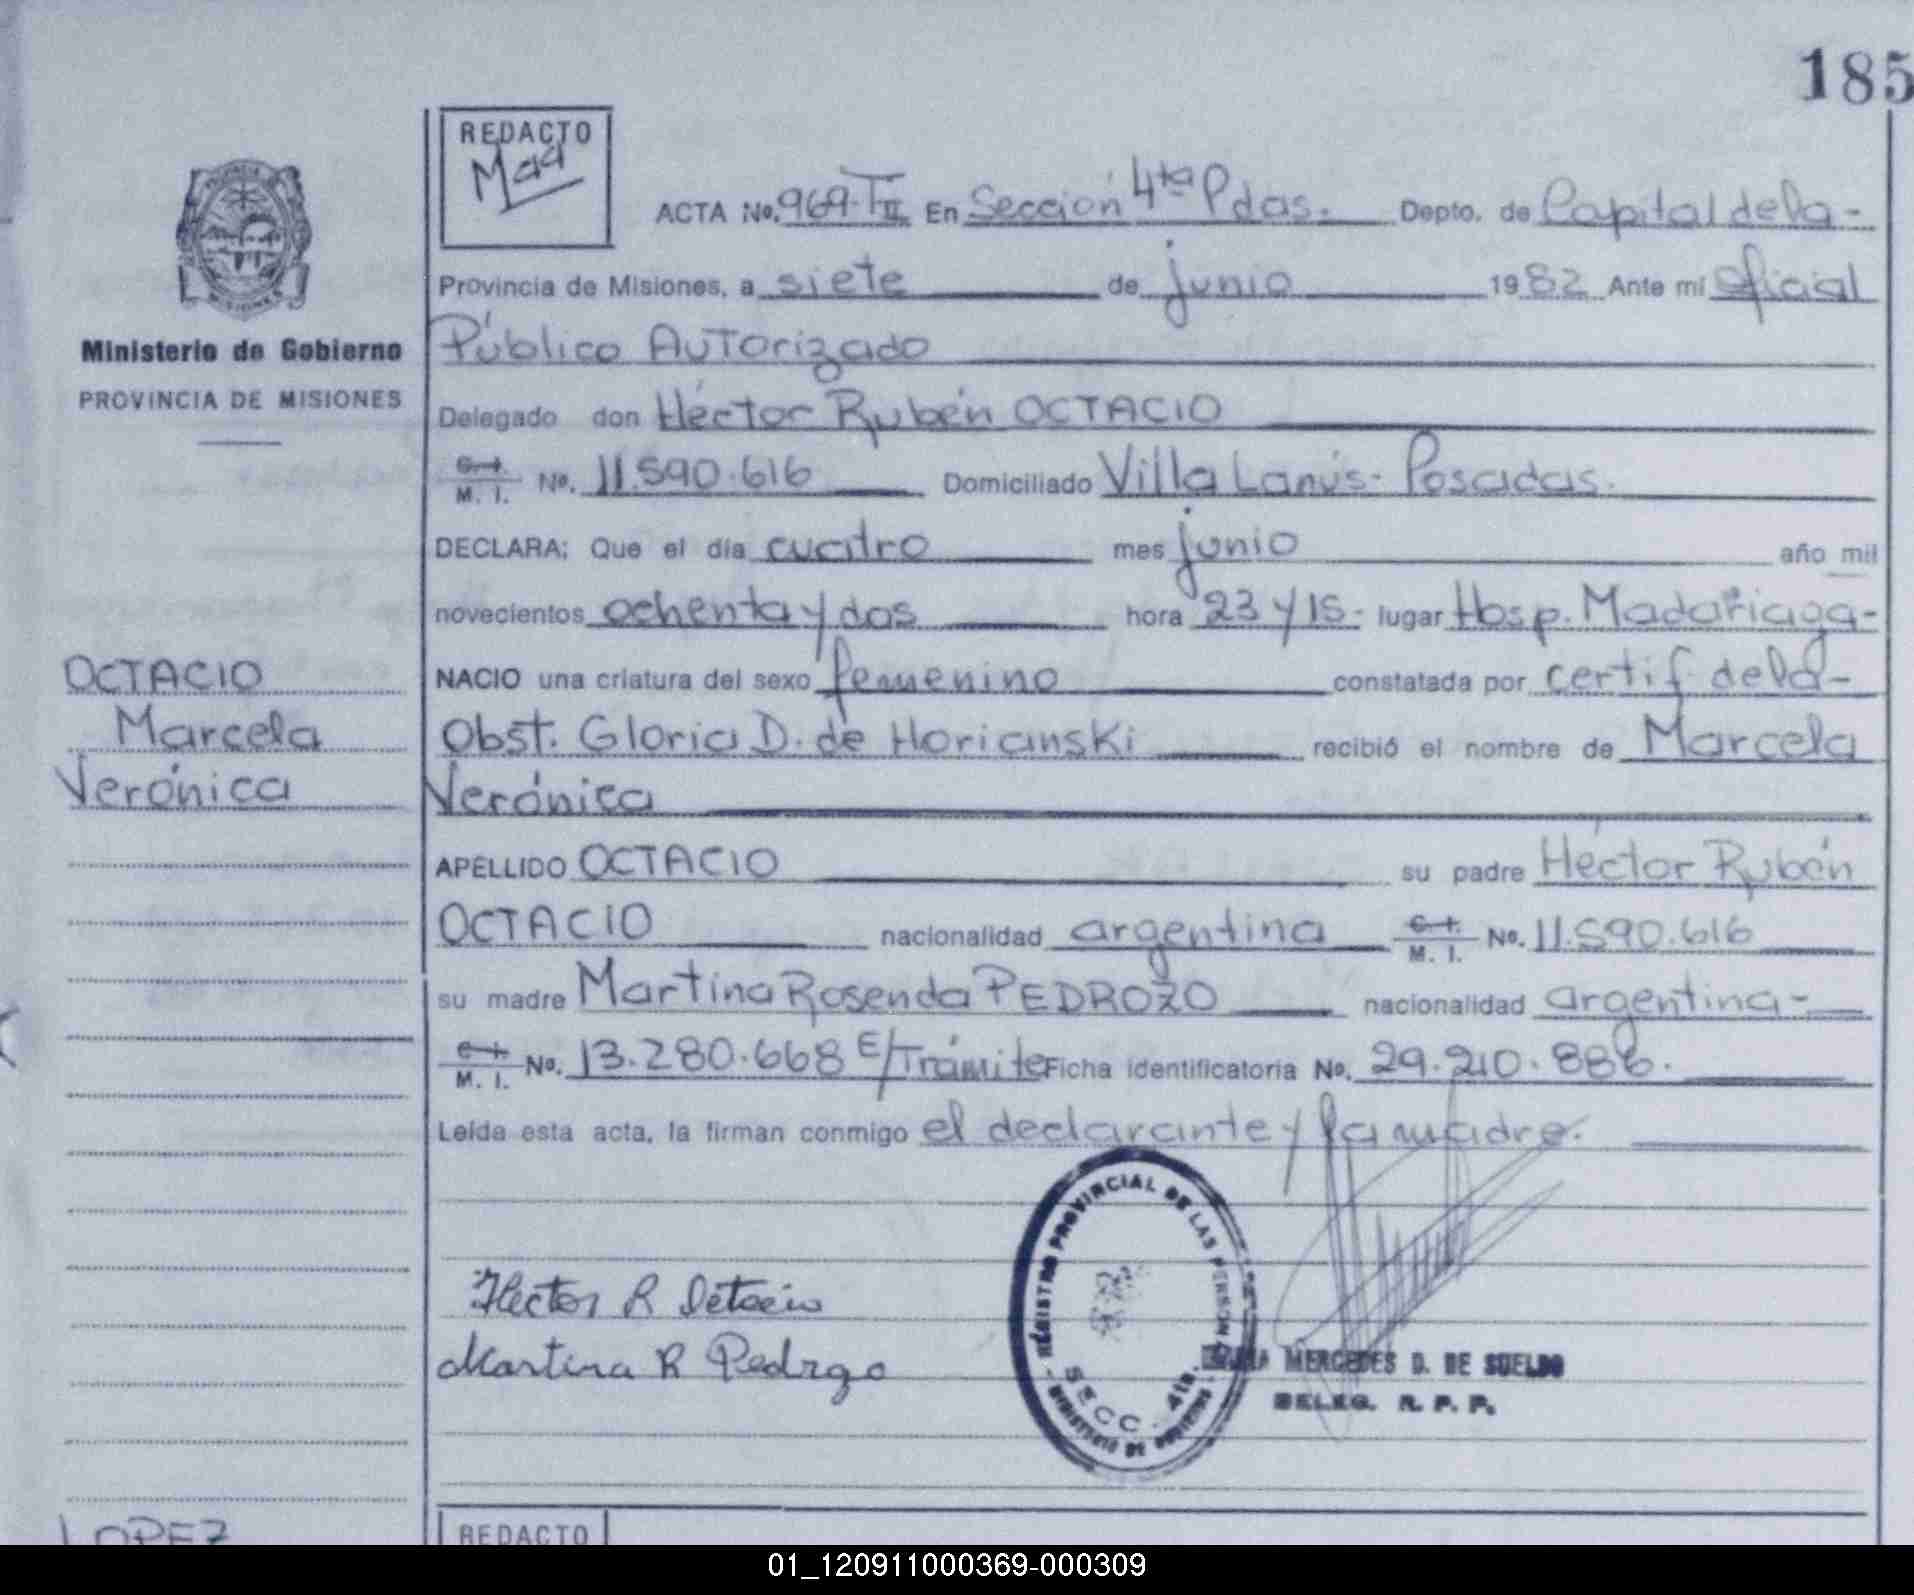 185
REDACTO
Maa
PROVINCIA DE
MISIONES
Ministerio de Gobierno
PROVINCIA DE MISIONES
ACTA No. 969-TII En Sección 4ta Pdas. Depto. de Capital de la-
Provincia de Misiones, a siete de junio 1982 Ante mí Oficial
Público Autorizado
Delegado don Héctor Rubén OCTACIO
C. I. M. I. No. 11.590.616 Domiciliado Villa Lanús- Posadas.
DECLARA: Que el día cuatro mes junio año mil
novecientos ochenta y dos hora 23 y 15- lugar Hosp. Madariaga-
NACIO una criatura del sexo femenino constatada por certif de la-
Obst. Gloria D. de Horianski recibió el nombre de Marcela
Verónica
OCTACIO
Marcela
Verónica
APELLIDO OCTACIO su padre Héctor Rubén
OCTACIO nacionalidad argentina C. I. M. I. No. 11.590.616
su madre Martina Rosenda PEDROZO nacionalidad argentina-
C. I. M. I. No. 13.280.668 E/Trámite Ficha identificatoria No. 29.210.886.
Leída esta acta, la firman conmigo el declarante y la madre.
REGISTRO PROVINCIAL DE LAS PERSONAS
SECC. 4ta.
MINISTERIO DE GOBIERNO
Hector R Octacio
Martina R Pedrozo
MERCEDES D. DE SUELDO
DELEG. R. P. P.
LOPEZ
REDACTO
01_120911000369-000309